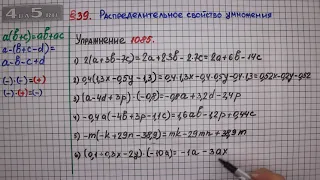 4 на 5 rus
§39. Распределительное свойство умножения
a(b+c)=ab+ac
a-(b+c-d)=
a-b-c+d
(-)·(-)=(+)
(+)·(-)=(-)
Упражнение 1085.
1) 2(a+3b-7c)=2a+2·3b-2·7c=2a+6b-14c
2) 0,4(1,3x-0,5y-1,3)=0,4·1,3x-0,4·0,5y-0,4·1,3=0,52x-0,2y-0,52
3) (a-4d+3p)·(-0,8)=-0,8a+3,2d-2,4p
4) -0,4a(-4b+3p-1,1c)=1,6ab-1,2p+0,44c
5) -m(-k+29n-38,9)=mk-29mn+38,9m
6) (0,1-0,3x-2y)·(-10a)=-1a-3ax